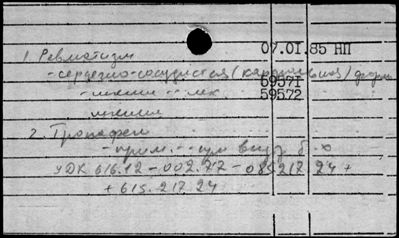 07.01.85 НП
1. Ревматизм
- сердечно-сосудистая (кардиальная) форма
69571
- лечение -- лек
59572
лечение
2. Тропафен
- прим. --при
УДК 616.12-002.77-085.217.24+
+615.217.24